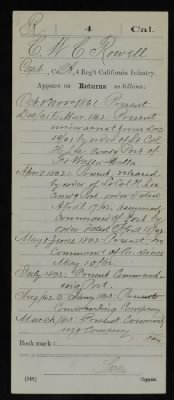 R | 4 | Cal.
C. W. C. Rowell
Capt., Co. , 4 Reg't California Infantry.
Appears on Returns as follows:
Oct & Nov 1861. Present
Dec/61 & Mar. 1862. Present
under arrest from Dec
19/61 by order of Lt Col
Lee Comdg Post of
Ft Walla Walla
April 1862. Present, released
by order of Lt Col Lee
comdg Post order dated
April 17/62. resumed
Command of Post by
order dated April 18/62
May & June 1862. Present in
Command of Co. since
May 10/62
July 1862. Present Command-
ing Post.
Aug/62 to Jany 1863. Present
Commanding Company
March/63 Present Command-
ing Company
Book mark:
(546)
Copyist.